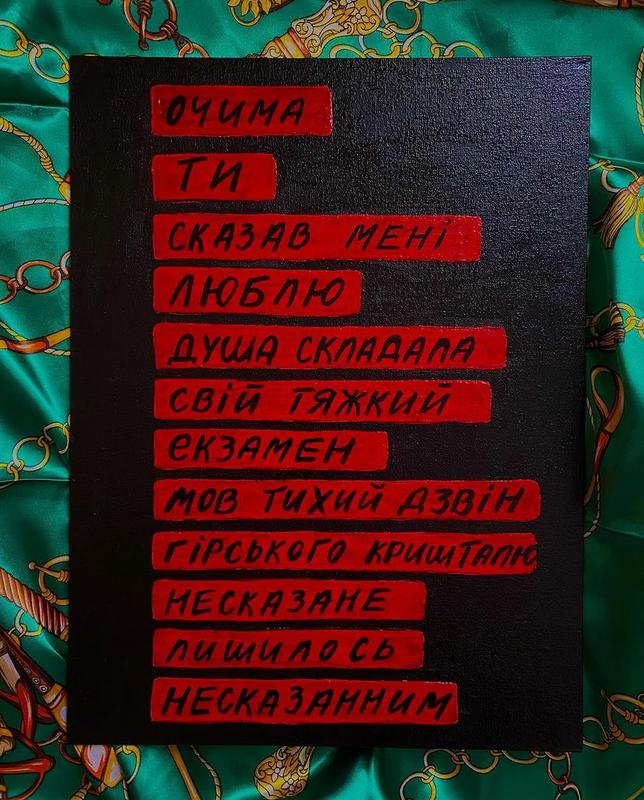 ОЧИМА
ТИ
СКАЗАВ МЕНІ
ЛЮБЛЮ
ДУША СКЛАДАЛА
СВІЙ ТЯЖКИЙ
ЕКЗАМЕН
МОВ ТИХИЙ ДЗВІН
ГІРСЬКОГО КРИШТАЛЮ
НЕСКАЗАНЕ
ЛИШИЛОСЬ
НЕСКАЗАННИМ